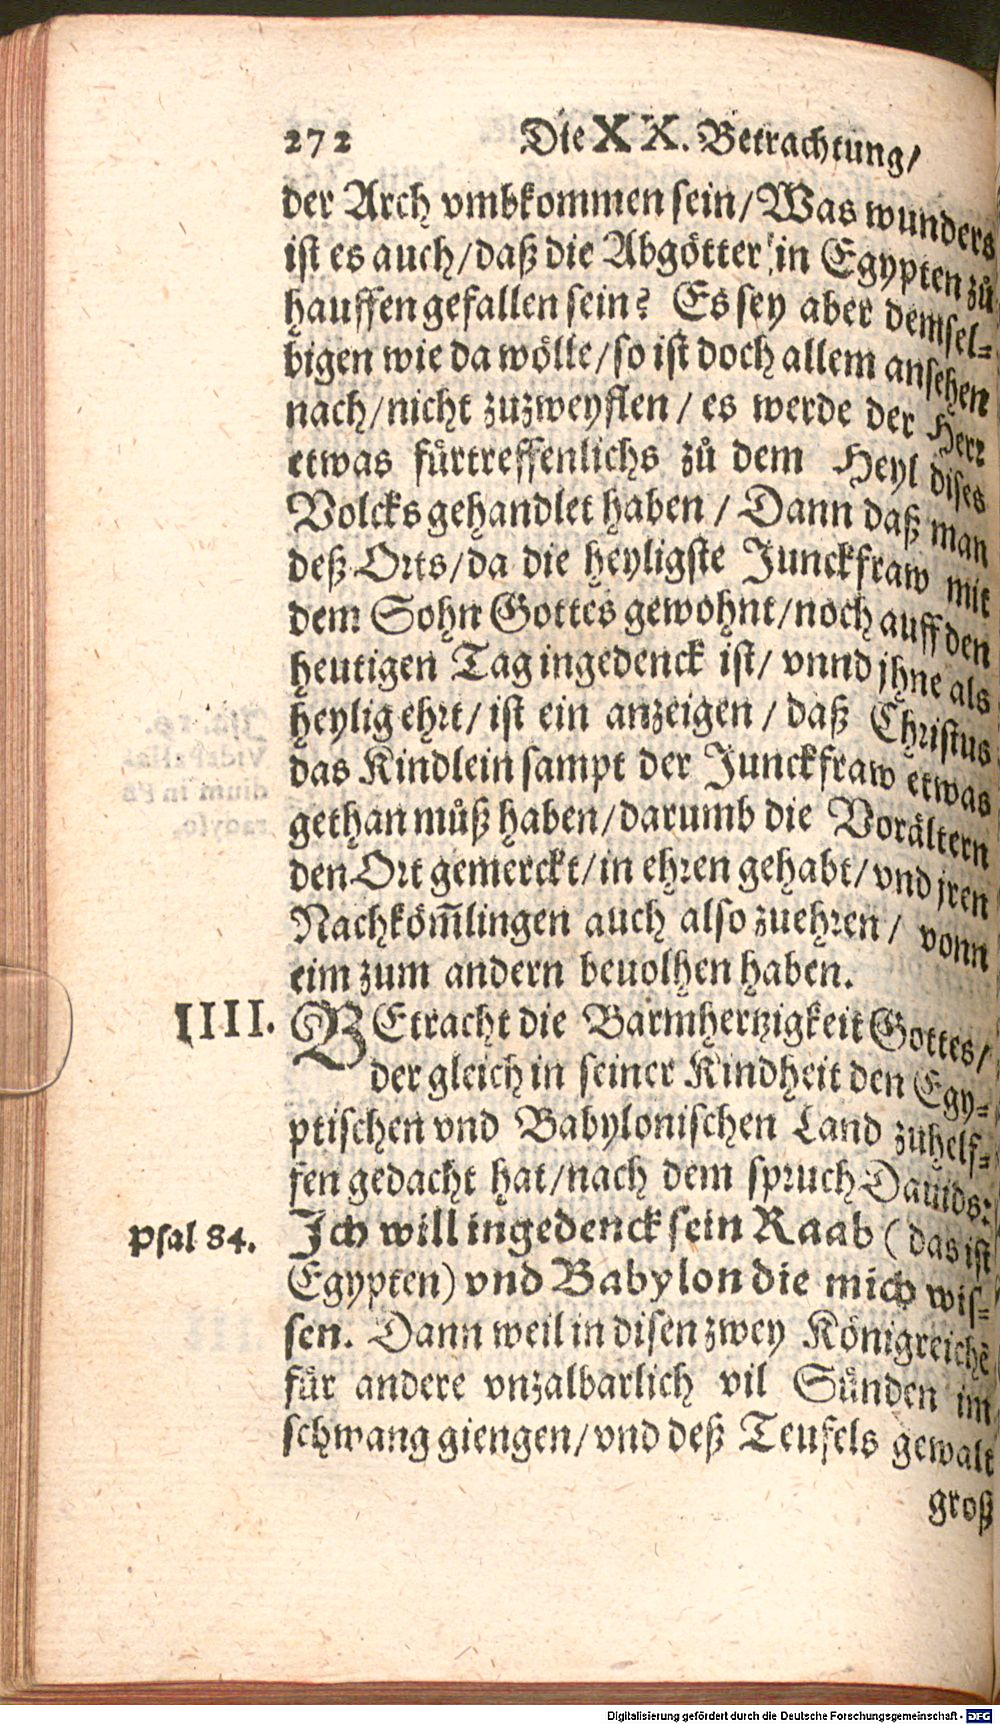 272 Die XX. Betrachtung/
der Arch vmbkommen sein/Was wunders
ist es auch/daß die Abgötter in Egypten zů
hauffen gefallen sein? Es sey aber demsel-
bigen wie da wölle/so ist doch allem ansehen
nach/nicht zuzweyflen/es werde der Herr
etwas fürtreffenlichs zů dem Heyl dises
Volcks gehandlet haben/Dann daß man
deß Orts/da die heyligste Junckfraw mit
dem Sohn Gottes gewohnt/noch auff den
heutigen Tag ingedenck ist/vnnd jhne als
heylig ehrt/ist ein anzeigen/daß Christus
das Kindlein sampt der Junckfraw etwas
gethan můß haben/darumb die Vorältern
den Ort gemerckt/in ehren gehabt/vnd jren
Nachköm̃lingen auch also zuehren/vonn
eim zum andern beuolhen haben.
IIII. BEtracht die Barmhertzigkeit Gottes/
der gleich in seiner Kindheit den Egy-
ptischen vnd Babylonischen Land zuhelf-
fen gedacht hat/nach dem spruch Dauids:
Psal 84. Ich will ingedenck sein Raab (das ist
Egypten) vnd Babylon die mich wis-
sen. Dann weil in disen zwey Königreichẽ
für andere vnzalbarlich vil Sünden im
schwang giengen/vnd deß Teufels gewalt
groß
Digitalisierung gefördert durch die Deutsche Forschungsgemeinschaft - DFG